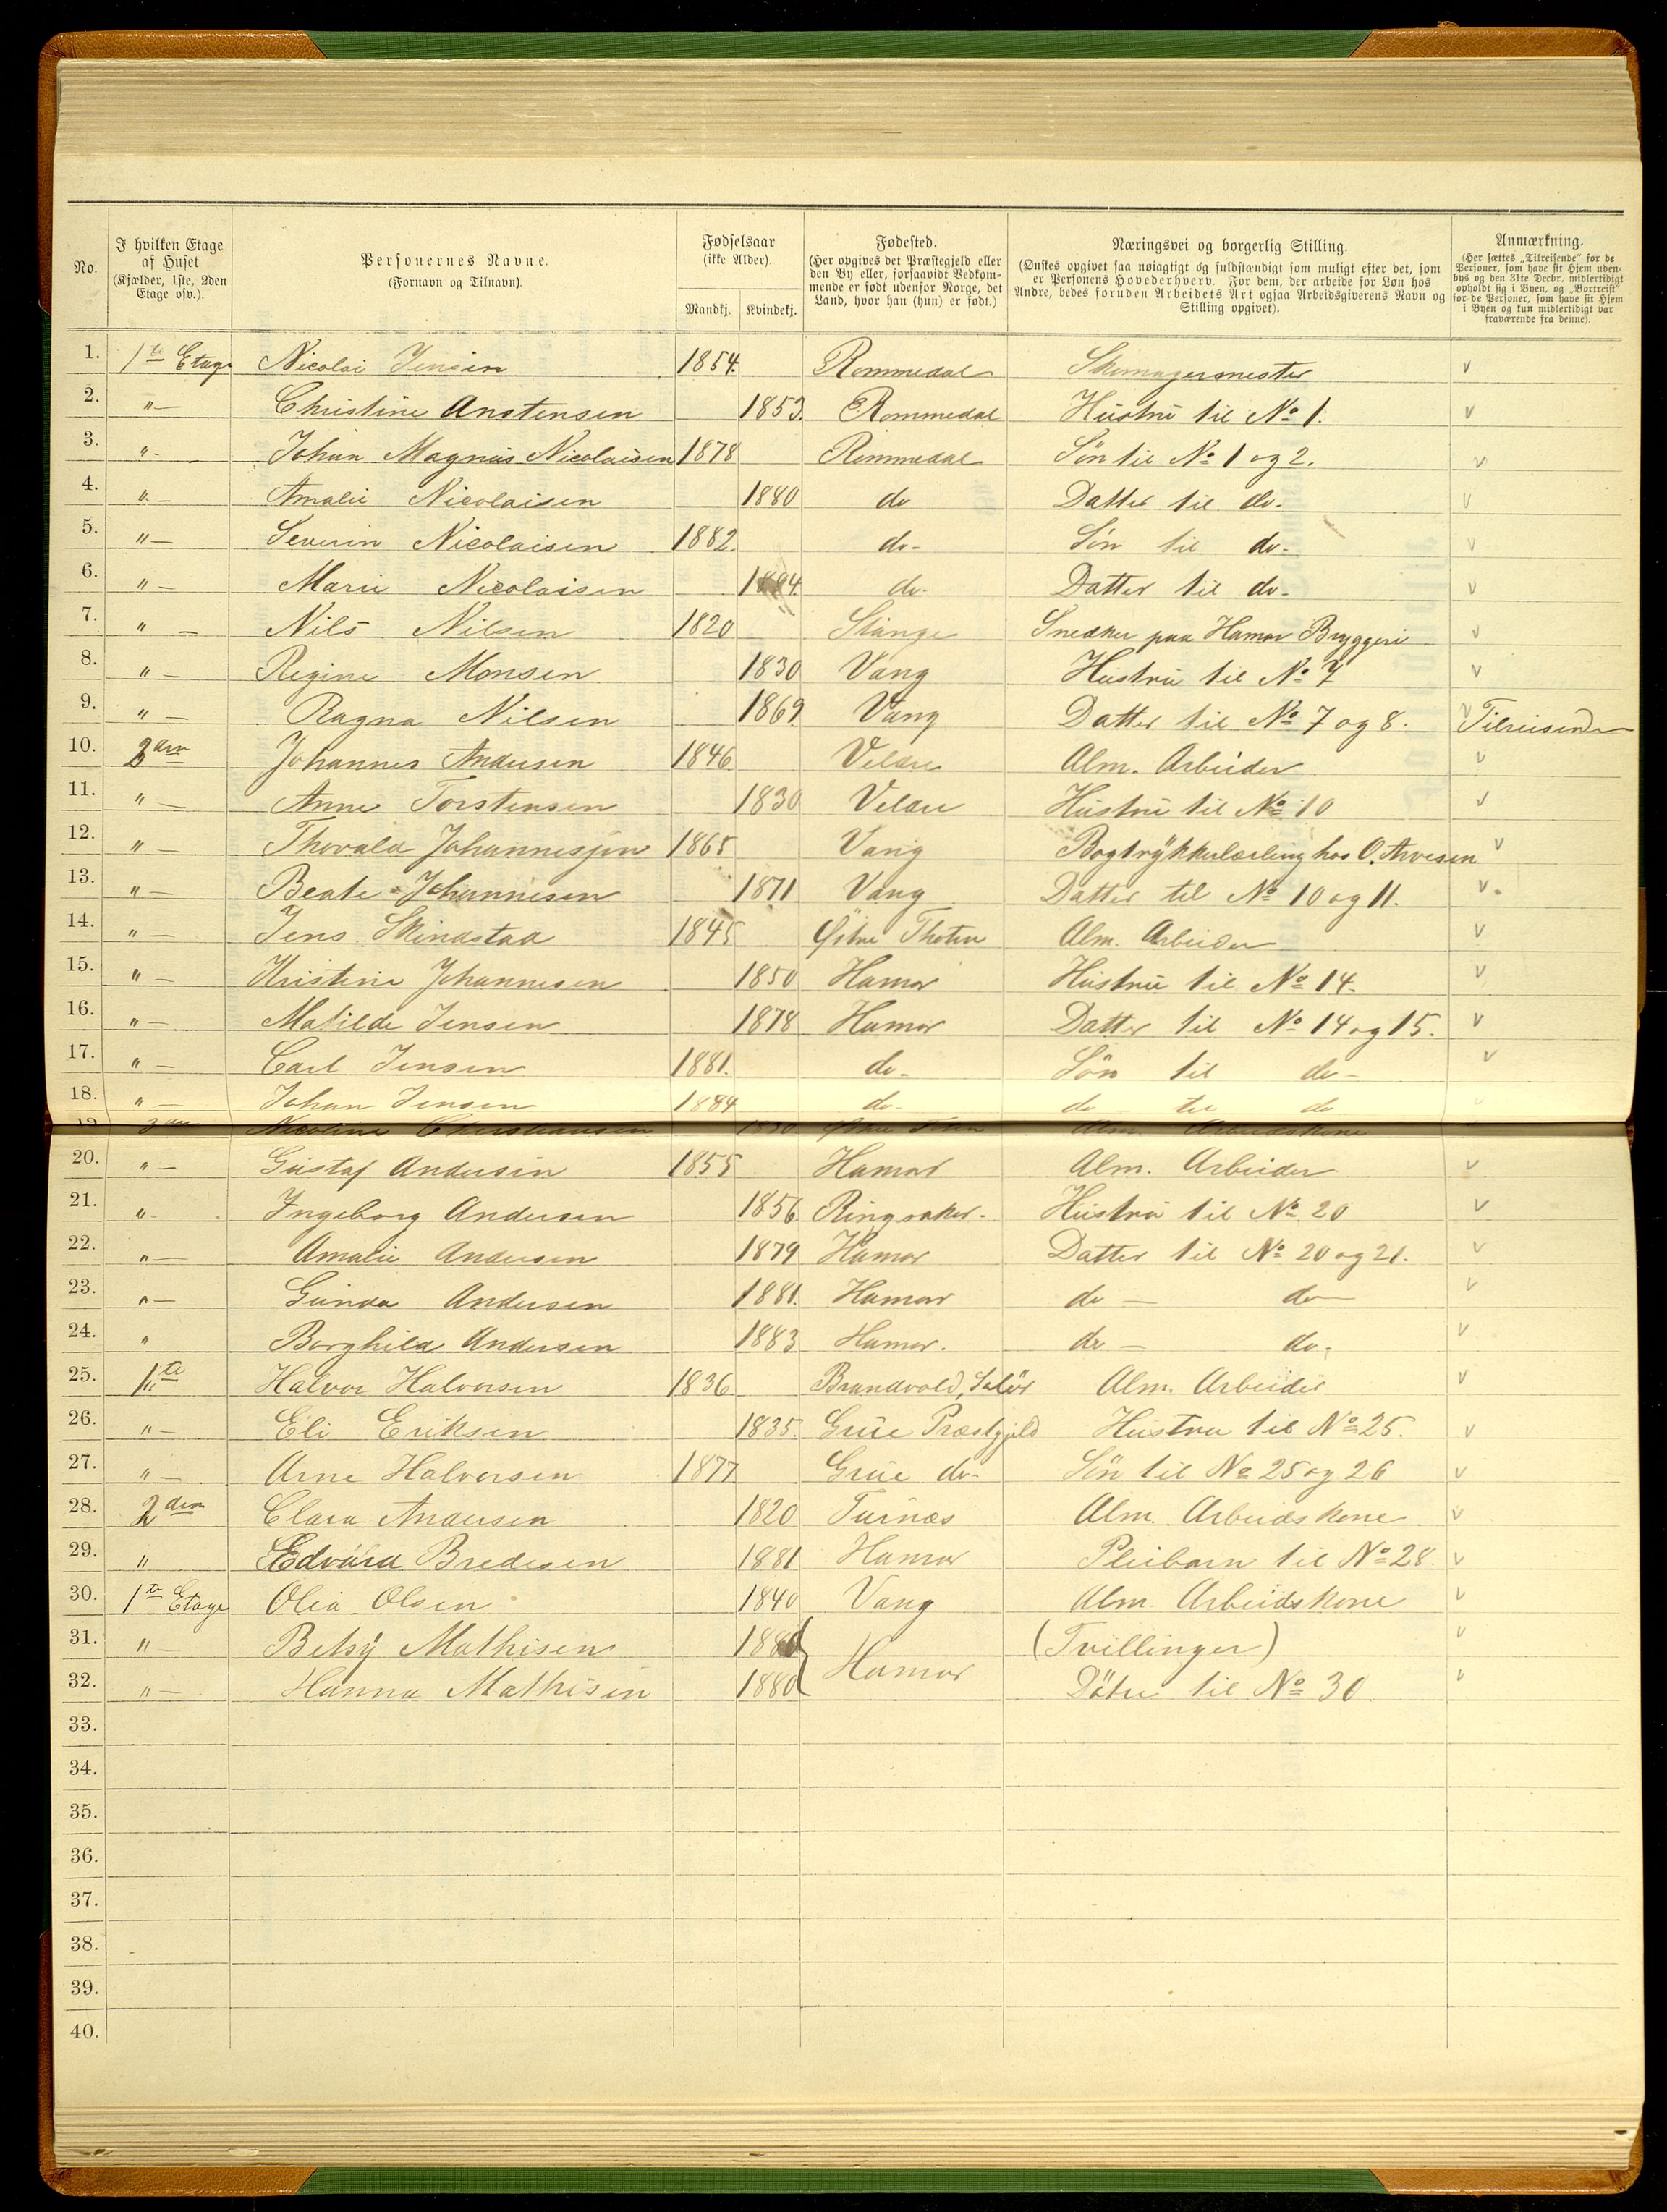 No.
I hvilken Etage af Huset (Kjælder, 1ste, 2den Etage osv.).
Personernes Navne. (Fornavn og Tilnavn).
Fødselsaar (ikke Alder).
Mandkj. Kvindekj.
Fødested. (Her opgives det Præstegjeld eller den By eller, forsaavidt Vedkommende er født udenfor Norge, det Land, hvor han (hun) er født.)
Næringsvei og borgerlig Stilling. (Ønskes opgivet saa nøiagtigt og fuldstændigt som muligt efter det, som er Personens Hovederhverv. For dem, der arbeide for Løn hos Andre, bedes foruden Arbeidets Art ogsaa Arbeidsgiverens Navn og Stilling opgivet).
Anmærkning. (Her sættes „Tilreisende" for de Personer, som have sit Hjem udenbys og den 31te Decbr. midlertidigt opholdt sig i Byen, og „Bortreist" for de Personer, som have sit Hjem i Byen og kun midlertidigt var fraværende fra denne).
1. 1te Etage Nicolai Jensen 1854. Rommedal Skomagermester v
2. " — Christine Anstensen 1853. Rommedal Hustru til No 1. v
3. " - Johan Magnus Nicolaisen 1878 Rommedal Søn til No 1 og 2. v
4. " — Amalie Nicolaisen 1880 do Datter til do- v
5. " — Severin Nicolaisen 1882. do- Søn til do- v
6. " — Marie Nicolaisen 1884. do- Datter til do- v
7. " — Nils Nilsen 1820 Stange Snedker paa Hamar Bryggeri v
8. " — Regine Monsen 1830 Vang Hustru til No 7 v
9. " — Ragna Nilsen 1869 Vang Datter til No 7 og 8. v Tilreisende
10. 2den Johannes Andersen 1846 Veldre Alm. Arbeider v
11. " — Anne Torstensen 1830 Veldre Hustru til No 10 v
12. " — Thorvald Johannesen 1865 Vang Bogtrykkerlærling hos O. Arvesen v
13. " — Beate Johannesen 1871 Vang Datter til No 10 og 11. v
14. " — Jens Skindstad 1845 Østre Thoten Alm. Arbeider v
15. " — Kristine Johannesen 1850 Hamar Hustru til No 14. v
16. " — Matilde Jensen 1878 Hamar Datter til No 14 og 15. v
17. " — Carl Jensen 1881. do- Søn til do- v
18. " — Johan Jensen 1884 do- do til do v
19 2den Nicoline Christiansen 1830 Østre Toten Alm. Arbeidskone
20. " — Gustaf Andersen 1855 Hamar Alm. Arbeider v
21. " - Ingeborg Andersen 1856 Ringsaker- Hustru til No 20 v
22. " — Amalie Andersen 1879 Hamar Datter til No 20 og 21. v
23. " — Gunda Andersen 1881. Hamar do — do— v
24. " Borghild Andersen 1883 Hamar. do — do- v
25. 1te Halvor Halvorsen 1836 Brandvold, Solør Alm. Arbeider v
26. " — Eli Eriksen 1835. Grue Præstgjeld Hustru til No 25. v
27. " — Arne Halvorsen 1877 Grue do- Søn til No 25 og 26 v
28. 2den Clara Andersen 1820 Furnæs Alm. Arbeidskone v
29. " Edvard Bredesen 1881 Hamar Pleibarn til No 28. v
30. 1te Etage Olea Olsen 1840 Vang Alm. Arbeidskone v
31. " — Betsy Mathisen 1880 } Hamar (Tvillinger) v
32. " — Hanna Mathisen 1880 Døtre til No 30 v
33.
34.
35.
36.
37.
38.
39.
40.